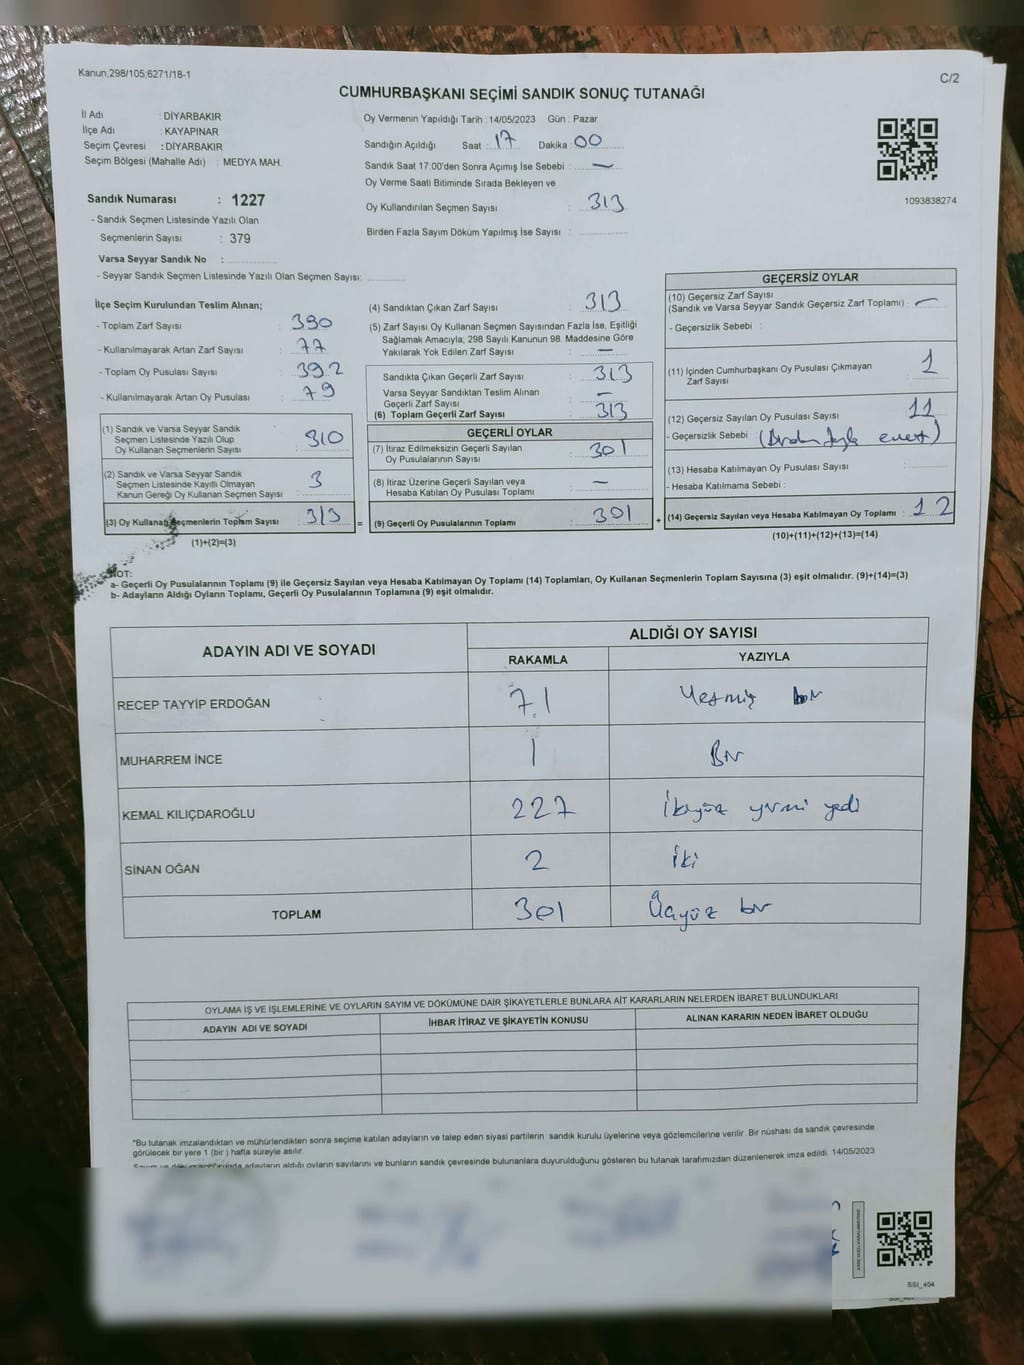 Kanun;298/105;6271/18-1
C/2
CUMHURBAŞKANI SEÇİMİ SANDIK SONUÇ TUTANAĞI
İl Adı : DİYARBAKIR
İlçe Adı : KAYAPINAR
Seçim Çevresi : DİYARBAKIR
Seçim Bölgesi (Mahalle Adı) : MEDYA MAH.
Sandık Numarası : 1227
- Sandık Seçmen Listesinde Yazılı Olan
Seçmenlerin Sayısı : 379
Varsa Seyyar Sandık No :
- Seyyar Sandık Seçmen Listesinde Yazılı Olan Seçmen Sayısı:
Oy Vermenin Yapıldığı Tarih : 14/05/2023 Gün : Pazar
Sandığın Açıldığı Saat : 17 Dakika : 00
Sandık Saat 17:00'den Sonra Açımış İse Sebebi : —
Oy Verme Saati Bitiminde Sırada Bekleyen ve
Oy Kullandırılan Seçmen Sayısı : 313
Birden Fazla Sayım Döküm Yapılmış İse Sayısı :
1093838274
İlçe Seçim Kurulundan Teslim Alınan;
- Toplam Zarf Sayısı : 390
- Kullanılmayarak Artan Zarf Sayısı : 77
- Toplam Oy Pusulası Sayısı : 392
- Kullanılmayarak Artan Oy Pusulası : 79
(1) Sandık ve Varsa Seyyar Sandık
Seçmen Listesinde Yazılı Olup
Oy Kullanan Seçmenlerin Sayısı : 310
(2) Sandık ve Varsa Seyyar Sandık
Seçmen Listesinde Kayıtlı Olmayan
Kanun Gereği Oy Kullanan Seçmen Sayısı : 3
(3) Oy Kullanan Seçmenlerin Toplam Sayısı : 313
(1)+(2)=(3)
(4) Sandıktan Çıkan Zarf Sayısı : 313
(5) Zarf Sayısı Oy Kullanan Seçmen Sayısından Fazla İse, Eşitliği
Sağlamak Amacıyla; 298 Sayılı Kanunun 98. Maddesine Göre
Yakılarak Yok Edilen Zarf Sayısı : —
Sandıkta Çıkan Geçerli Zarf Sayısı : 313
Varsa Seyyar Sandıktan Teslim Alınan
Geçerli Zarf Sayısı : —
(6) Toplam Geçerli Zarf Sayısı : 313
GEÇERLİ OYLAR
(7) İtiraz Edilmeksizin Geçerli Sayılan
Oy Pusulalarının Sayısı : 301
(8) İtiraz Üzerine Geçerli Sayılan veya
Hesaba Katılan Oy Pusulası Toplamı : —
= (9) Geçerli Oy Pusulalarının Toplamı : 301
GEÇERSİZ OYLAR
(10) Geçersiz Zarf Sayısı
(Sandık ve Varsa Seyyar Sandık Geçersiz Zarf Toplamı) : —
- Geçersizlik Sebebi :
(11) İçinden Cumhurbaşkanı Oy Pusulası Çıkmayan
Zarf Sayısı : 1
(12) Geçersiz Sayılan Oy Pusulası Sayısı : 11
- Geçersizlik Sebebi : (Birden fazla evet)
(13) Hesaba Katılmayan Oy Pusulası Sayısı :
- Hesaba Katılmama Sebebi :
+ (14) Geçersiz Sayılan veya Hesaba Katılmayan Oy Toplamı : 12
(10)+(11)+(12)+(13)=(14)
NOT:
a- Geçerli Oy Pusulalarının Toplamı (9) ile Geçersiz Sayılan veya Hesaba Katılmayan Oy Toplamı (14) Toplamları, Oy Kullanan Seçmenlerin Toplam Sayısına (3) eşit olmalıdır. (9)+(14)=(3)
b- Adayların Aldığı Oyların Toplamı, Geçerli Oy Pusulalarının Toplamına (9) eşit olmalıdır.
ADAYIN ADI VE SOYADI
ALDIĞI OY SAYISI
RAKAMLA YAZIYLA
RECEP TAYYİP ERDOĞAN 71 Yetmiş bir
MUHARREM İNCE 1 Bir
KEMAL KILIÇDAROĞLU 227 İkiyüz yirmi yedi
SİNAN OĞAN 2 İki
TOPLAM 301 Üçyüz bir
OYLAMA İŞ VE İŞLEMLERİNE VE OYLARIN SAYIM VE DÖKÜMÜNE DAİR ŞİKAYETLERLE BUNLARA AİT KARARLARIN NELERDEN İBARET BULUNDUKLARI
ADAYIN ADI VE SOYADI İHBAR İTİRAZ VE ŞİKAYETİN KONUSU ALINAN KARARIN NEDEN İBARET OLDUĞU
*Bu tutanak imzalandıktan ve mühürlendikten sonra seçime katılan adayların ve talep eden siyasi partilerin sandık kurulu üyelerine veya gözlemcilerine verilir. Bir nüshası da sandık çevresinde
görülecek bir yere 1 (bir ) hafta süreyle asılır.
Sayım ve dökümü adayların aldığı oyların sayılarını ve bunların sandık çevresinde bulunanlara duyurulduğunu gösteren bu tutanak tarafımızdan düzenlenerek imza edildi. 14/05/2023
SSI_404